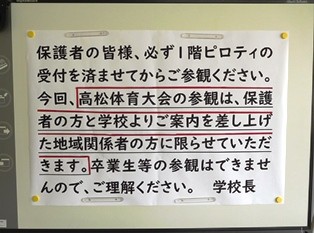 保護者の皆様、必ず1階ピロティの
受付を済ませてからご参観ください。
今回、高松体育大会の参観は、保護
者の方と学校よりご案内を差し上げ
た地域関係者の方に限らせていただ
きます。卒業生等の参観はできませ
んので、ご理解ください。　学校長